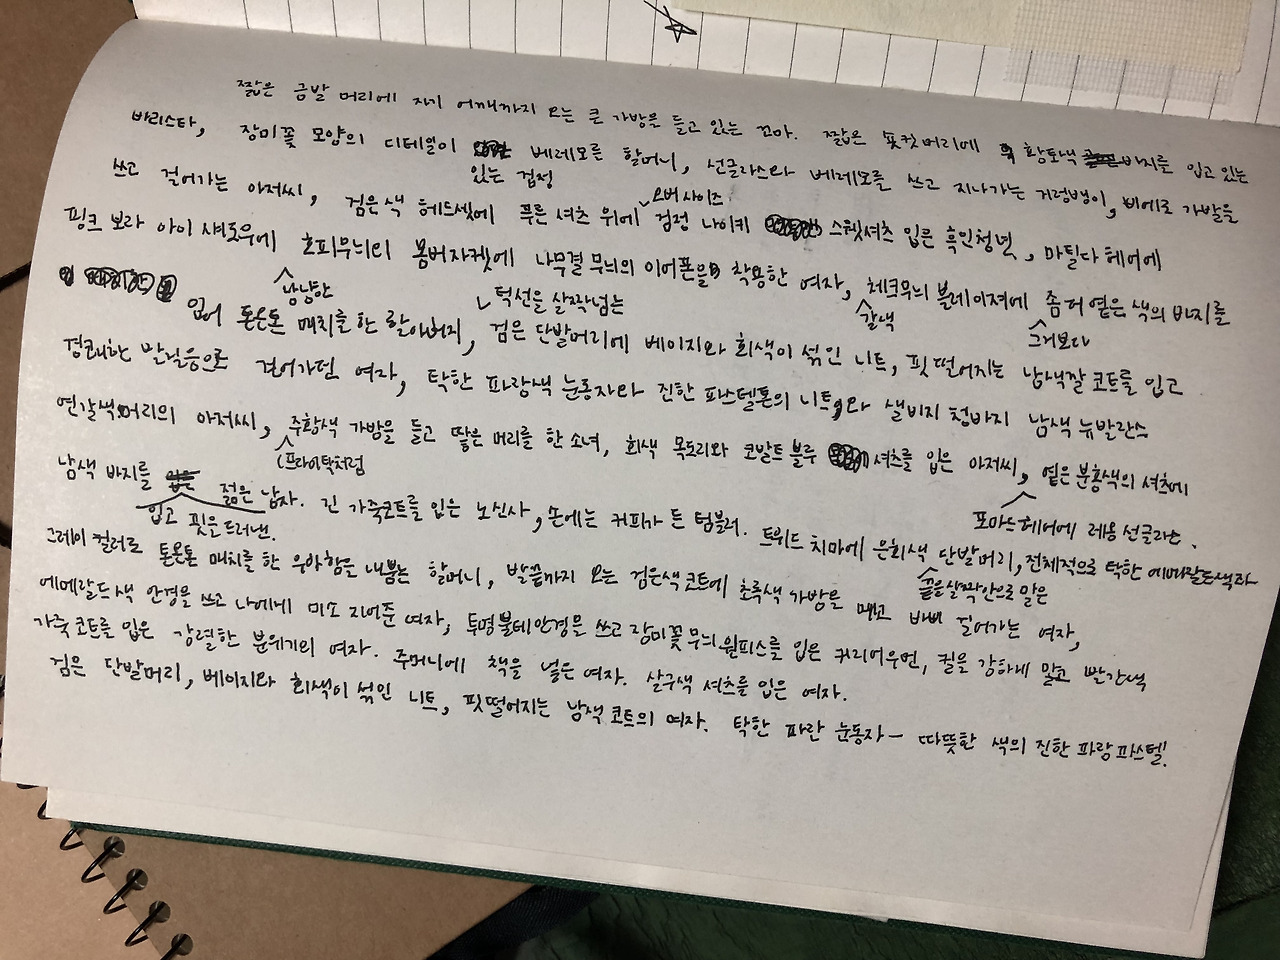 짧은 금발 머리에 자기 어깨까지 오는 큰 가방을 들고 있는 꼬마. 짧은 숏컷머리에 황토색 바지를 입고 있는
바리스타, 장미꽃 모양의 디테일이 베레모를 할머니, 선글라스와 베레모를 쓰고 지나가는 거렁뱅이, 삐에로 가발을
있는 검정
쓰고 걸어가는 아저씨, 검은색 헤드셋에 푸른 셔츠 위에 검정 나이키 스웻셔츠 입은 흑인청년, 마틸다 헤어에
오버사이즈
핑크 보라 아이섀도우에 호피무늬의 봄버자켓에 나무결 무늬의 이어폰을 착용한 여자, 체크무늬 블레이져에 좀 더 옅은 색의 바지를
낭낭한
갈색
그거보다
입어 톤온톤 매치를 한 할아버지, 검은 단발머리에 베이지와 회색이 섞인 니트, 핏 떨어지는 남색깔 코트를 입고
턱선을 살짝 넘는
경쾌한 발걸음으로 걸어가던 여자, 탁한 파랑색 눈동자와 진한 파스텔톤의 니트와 샐비지 청바지 남색 뉴발란스
연갈색머리의 아저씨, 주황색 가방을 들고 땋은 머리를 한 소녀, 회색 목도리와 코발트 블루 셔츠를 입은 아저씨, 옅은 분홍색의 셔츠에
(프라이탁처럼
남색 바지를 젊은 남자. 긴 가죽코트를 입은 노신사, 손에는 커피가 든 텀블러. 트위드 치마에 은회색 단발머리, 전체적으로 탁한 에메랄드색과
입고 핏을 드러낸.
포마드헤어에 레옹 선글라스.
끝을 살짝 안으로 말은
그레이 컬러로 톤온톤 매치를 한 우아함을 내뿜는 할머니, 발끝까지 오는 검은색 코트에 초록색 가방을 메고 바삐 걸어가는 여자,
에메랄드색 안경을 쓰고 나에게 미소 지어준 여자, 투명 뿔테안경을 쓰고 장미꽃 무늬 원피스를 입은 커리어우먼, 컬을 강하게 말고 빨간색
가죽 코트를 입은 강렬한 분위기의 여자. 주머니에 책을 넣은 여자. 살구색 셔츠를 입은 여자.
검은 단발머리, 베이지와 회색이 섞인 니트, 핏 떨어지는 남색 코트의 여자. 탁한 파란 눈동자— 따뜻한 색의 진한 파랑 파스텔!